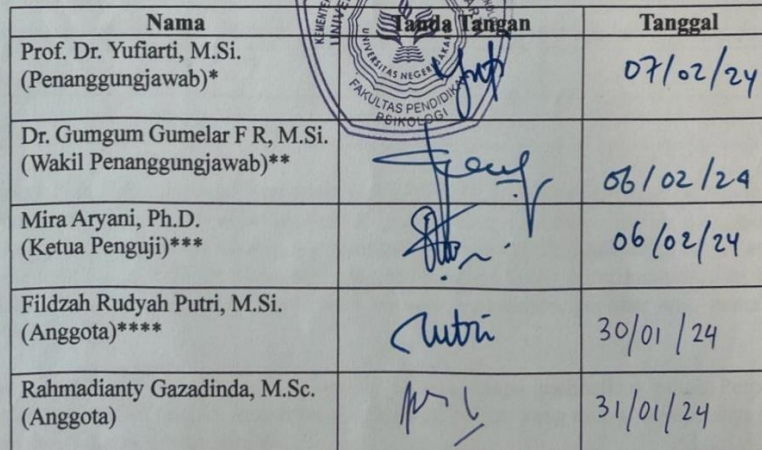 Nama Tanda Tangan Tanggal
Prof. Dr. Yufiarti, M.Si.
(Penanggungjawab)*
07/02/24
Dr. Gumgum Gumelar F R, M.Si.
(Wakil Penanggungjawab)**
06/02/24
Mira Aryani, Ph.D.
(Ketua Penguji)***
06/02/24
Fildzah Rudyah Putri, M.Si.
(Anggota)****
Putri
30/01/24
Rahmadianty Gazadinda, M.Sc.
(Anggota)
31/01/24
UNIVERSITAS NEGERI
FAKULTAS PENDIDIKAN
PSIKOLOGI